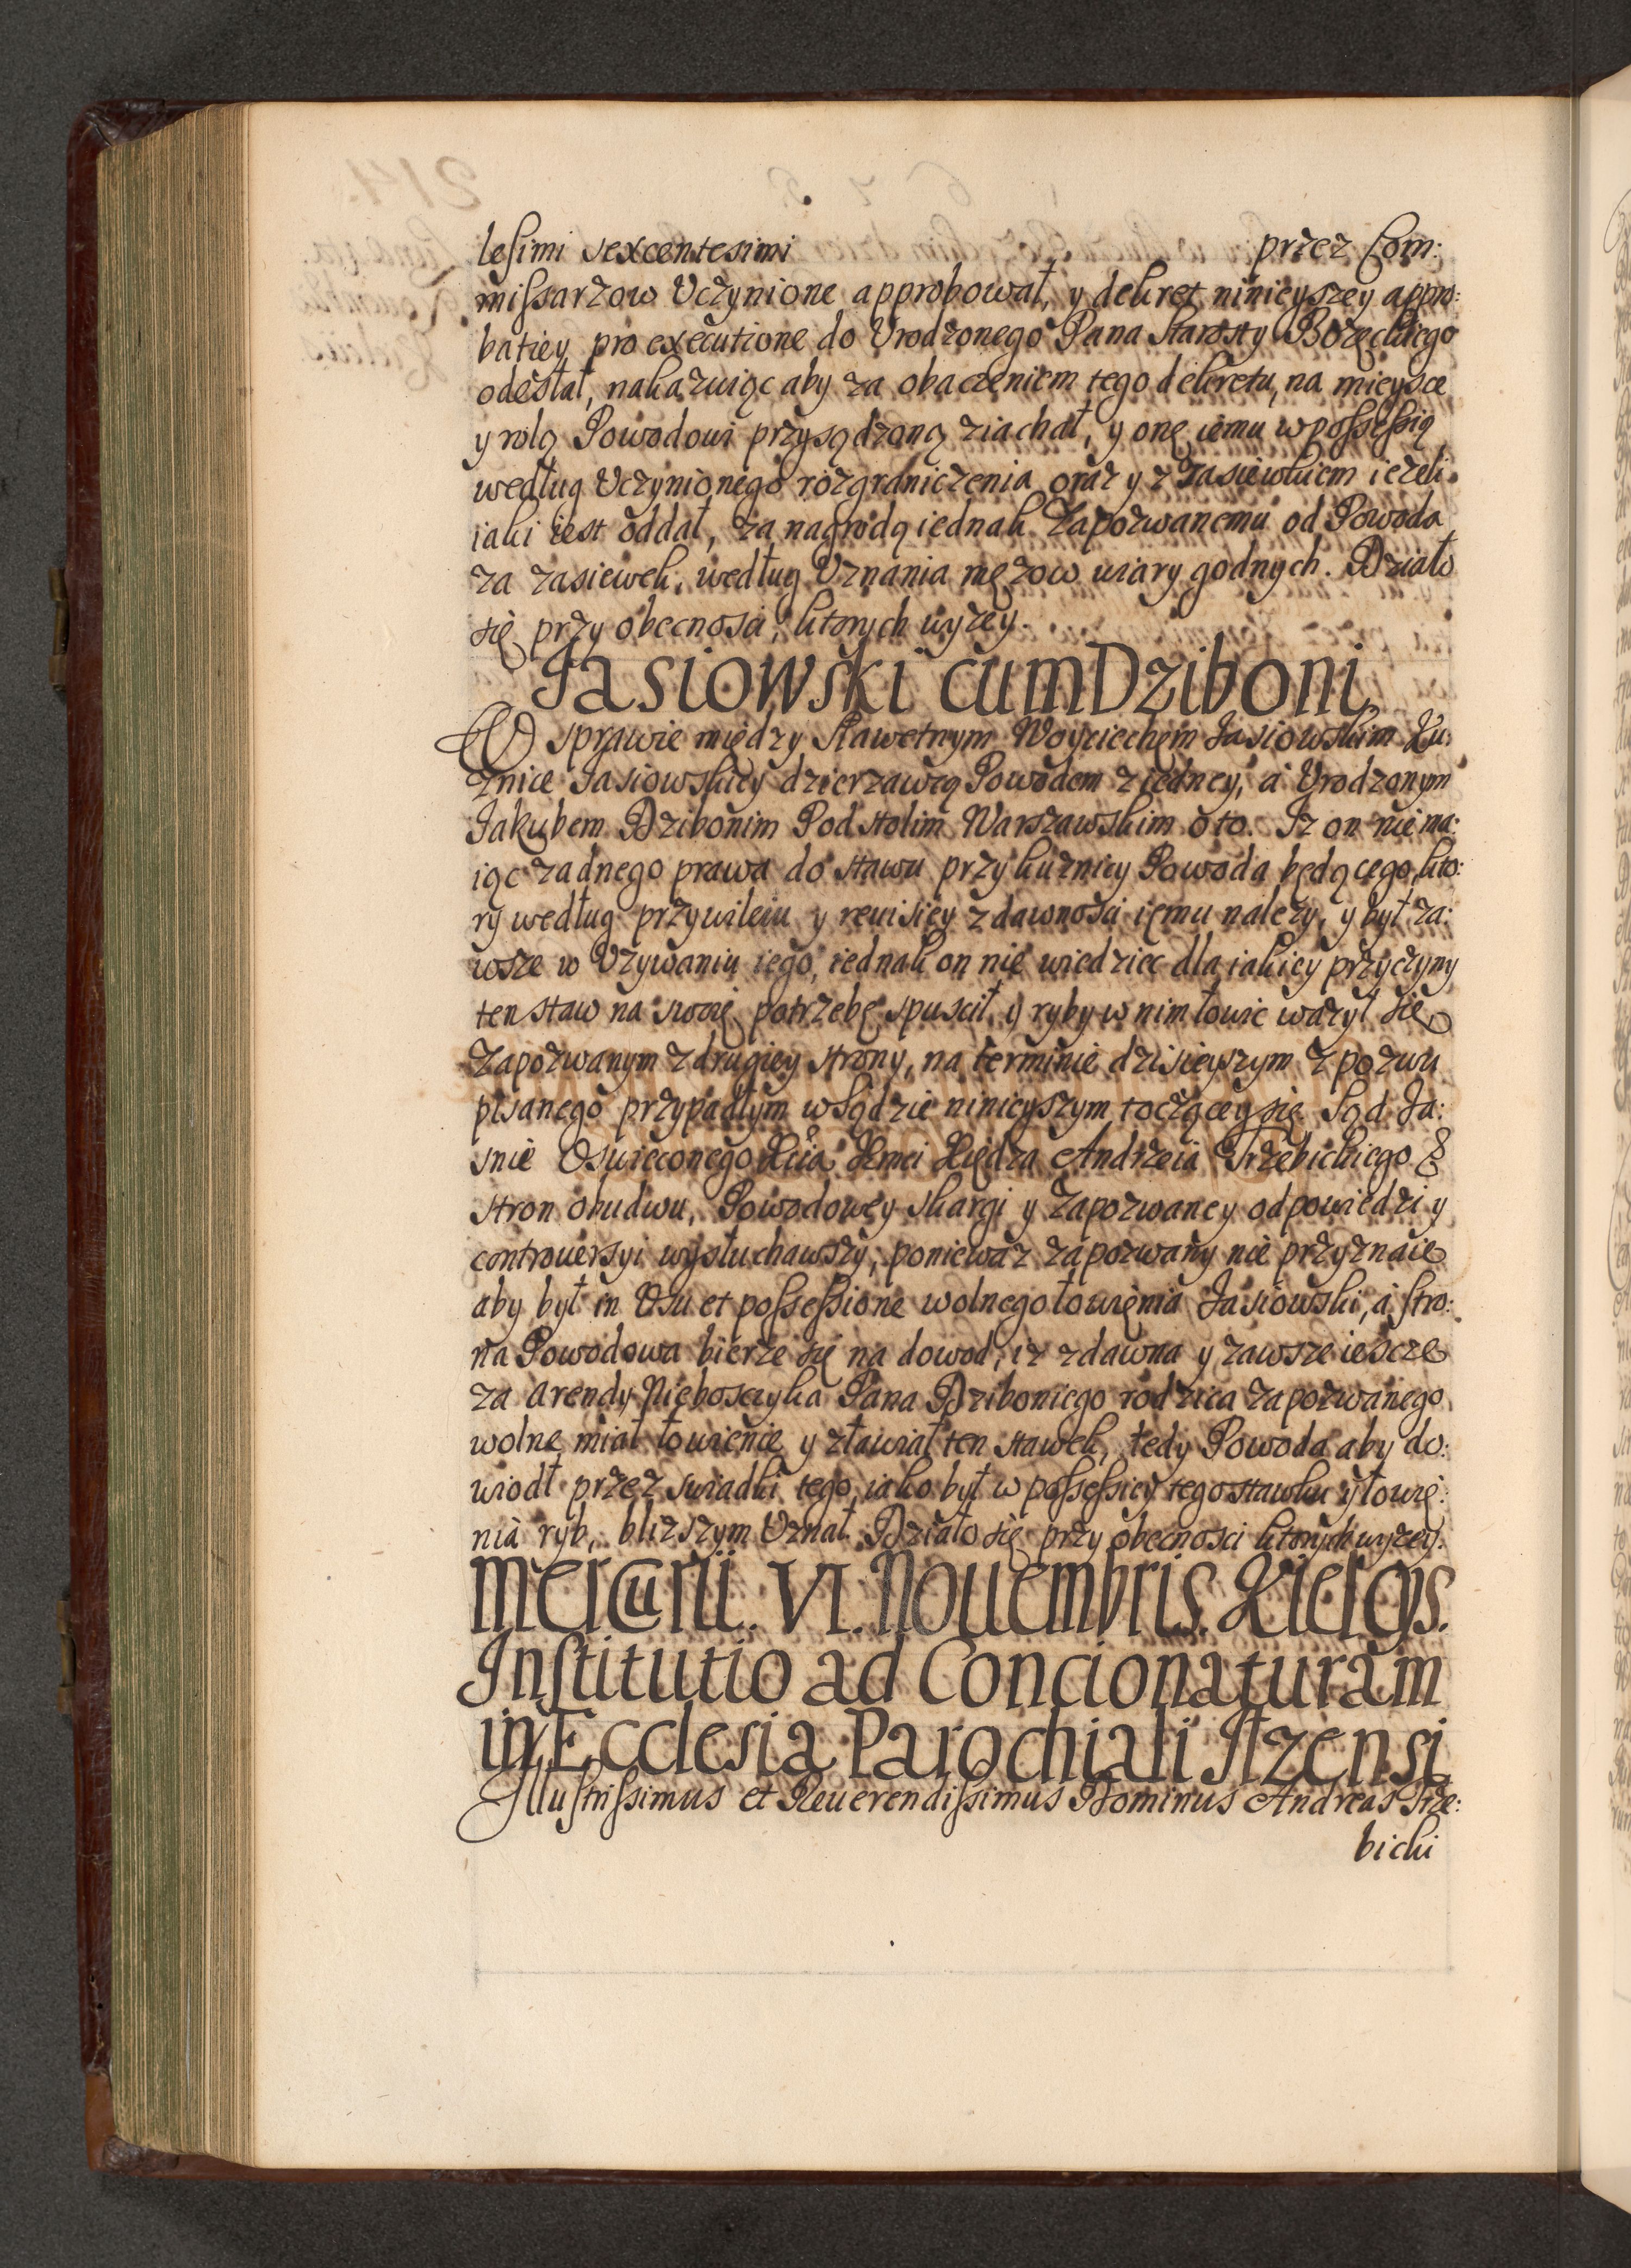 lesimi sexcentesimi przez Com:
missarzow Vczynione approbował, y dekret ninieyszey appro:
batiey pro executione do Vrodzonego Pana Starosty Borzęckiego
odesłał, nakazuiąc aby za obaczeniem tego dekretu, na mieysce
y rolą Powodowi przysądzoną ziachał, y onę iemu w possessią
według Vczynionego rozgraniczenia oraz y z Zasiewkiem ieżeli
iaki iest oddał, za nagrodą iednak Zapozwanemu od Powoda
za zasiewek, według Vznania mężow wiary godnych. Działo
się przy obecnosci, ktorych wyżey.
Jasiowski cum Dziboni
W sprawie między Sławetnym Woyciechem Jasiowskim Ku:
znice Jasiowskiey dzierzawcą Powodem z iedney, a Vrodzonym
Jakubem Dzibonim Podstolim Warszawskim o to. Iz on nie ma:
iąc zadnego prawa do stawu przy kuznicy Powoda będącego, kto:
ry według przywileiu y reuisiey z dawnosci iemu nalezy, y był za:
wsze w Vzywaniu iego, iednak on nie wiedziec dla iakiey przyczyny
ten staw na swoię potrzebę spuscił, y ryby w nim łowic wazył się
Zapozwanym z drugiey strony, na terminie dzisieyszym z pozwu
pisanego przypadłym w Sądzie ninieyszym toczącey się Sąd Ja:
snie Oswieconego Xcia Jmci Xiędza Andrzeia Trzebickiego &
stron obudwu, Powodowey skargi y Zapozwaney odpowiedzi y
controuersyi wysłuchawszy, poniewaz zapozwany nie przyznaie
aby był in Vsu et possessione wolnego łowienia Jasiowski, a stro:
na Powodowa bierze się na dowod, iz zdawna y zawsze iescze
za Arendy Nieboscyka Pana Dziboniego rodzica zapozwanego
wolne miał łowienie y zławiał ten stawek, tedy Powoda aby do:
wiodł przez swiadki tego, iako był w possessiey tego stawku y łowie:
nia ryb, blizszym Vznał. Działo się przy obecnosci ktorych wyzey.
Mercurii. VI. Nouembris. Kielciis.
Institutio ad Concionaturam
in Ecclesia Parochiali Ilzensi
Illustrissimus et Reuerendissimus Dominus Andreas Trze:
bicki